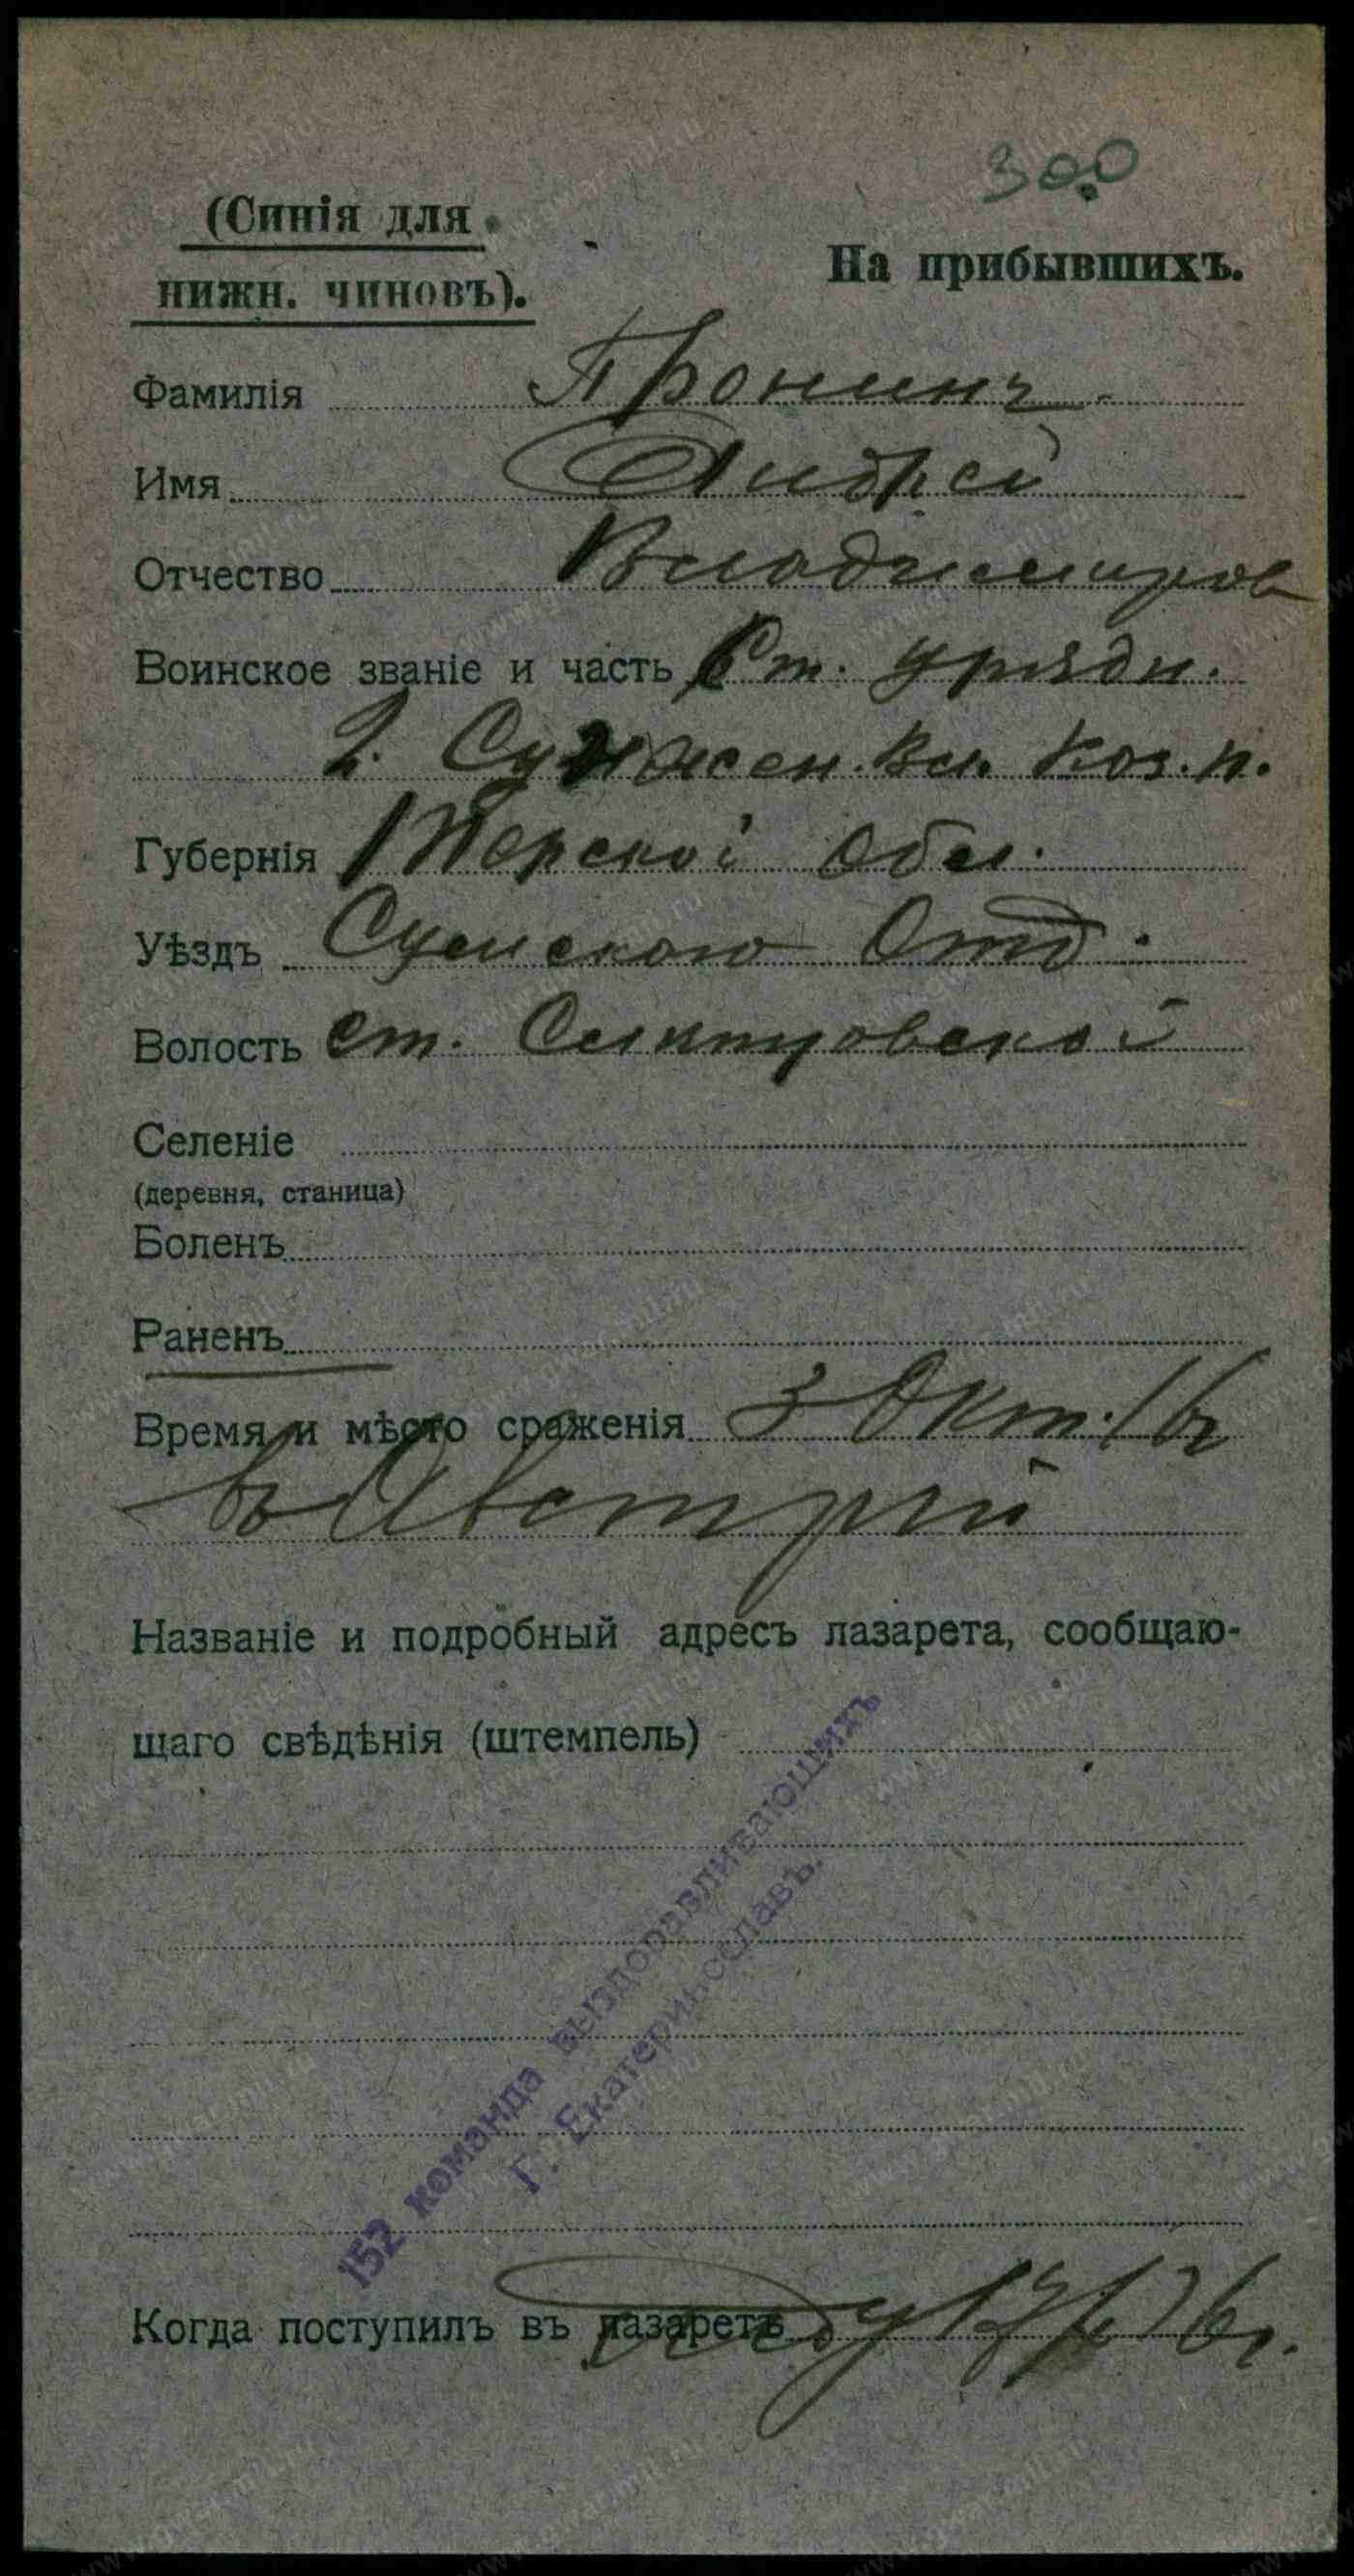 300
(Синія для
нижн. чиновъ).
На прибывшихъ.
Фамилія Пронинъ
Имя Андрей
Отчество Владимиров
Воинское званіе и часть Ст. урядн.
2. Сунжен. Вл. Каз. п.
Губернія Терской Обл.
Уѣздъ Отд.
Волость ст. Слепцовской
Селеніе
(деревня, станица)
Боленъ
Раненъ
Время и мѣсто сраженія 3 Окт. 16
въ Австрии
Названіе и подробный адресъ лазарета, сообщаю-
щаго свѣдѣнія (штемпель)
152 команда выздоравливающихъ
Г. Екатеринославъ.
Когда поступилъ въ лазаретъ